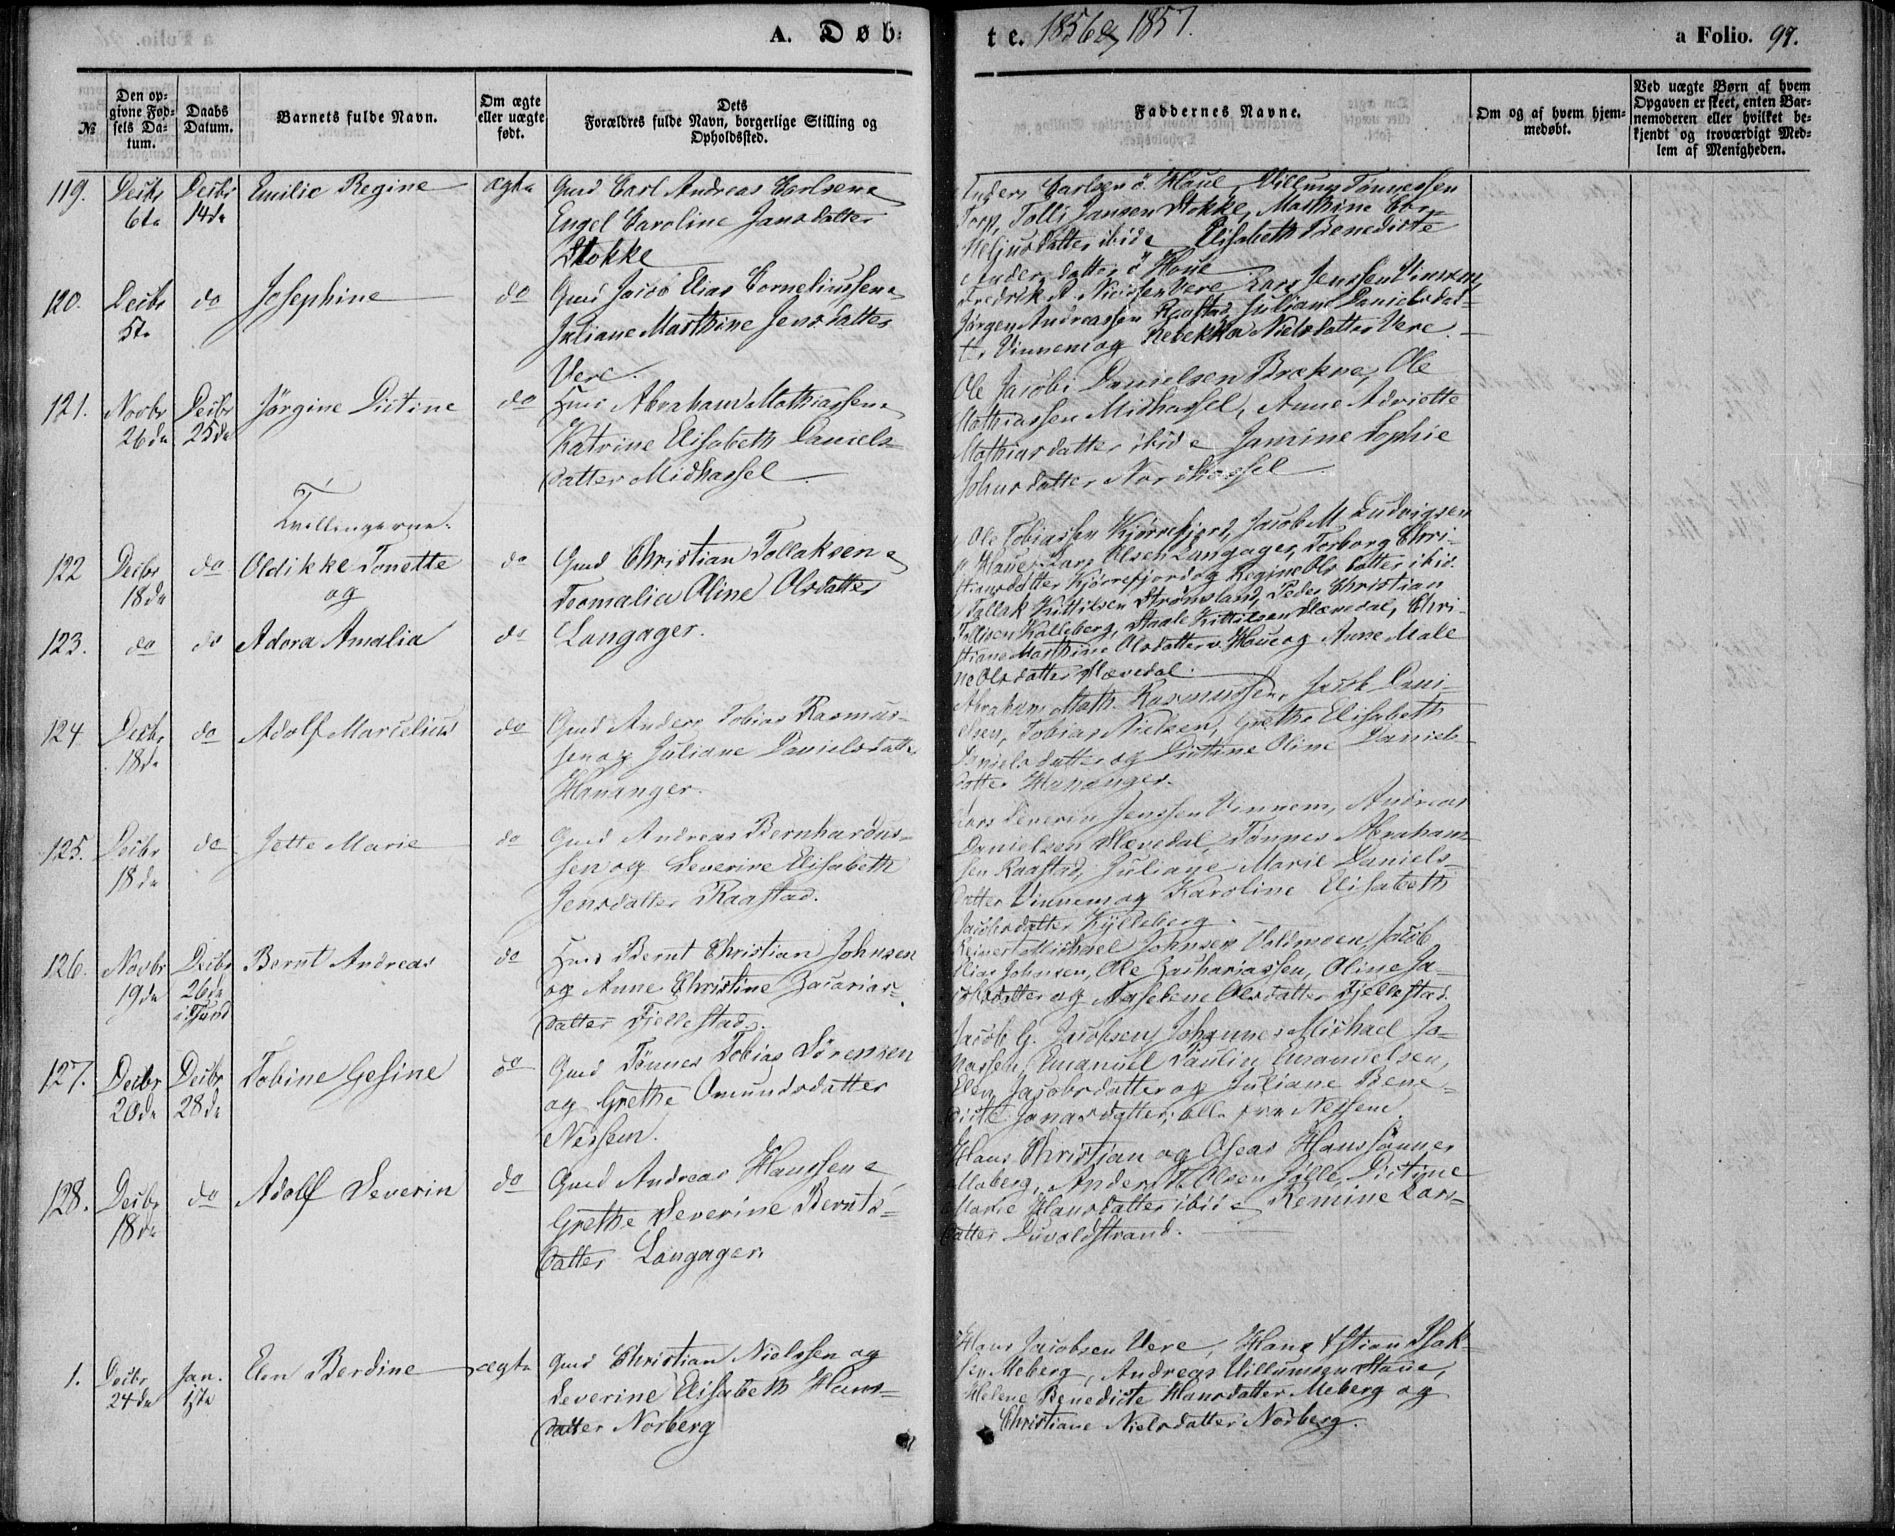 A. Døb-
te. 1856 & 1857.
a Folio. 97.
№
Den op-
givne Fød-
sels Da-
tum.
Daabs
Datum.
Barnets fulde Navn.
Om ægte
eller uægte
født.
Dets
Forældres fulde Navn, borgerlige Stilling og
Opholdssted.
Faddernes Navne.
Om og af hvem hjem-
medøbt.
Ved uægte Børn af hvem
Opgaven er skeet, enten Bar-
nemoderen eller hvilket be-
kjendt og troværdigt Med-
lem af Menigheden.
119.
Decbr
6te
Decbr
14de
Emilie Regine
ægte
Gmd Carl Andreas Carlsen &
Engel Caroline Jansdatter
Stokke
Anders Carlsen ö. Haue, Villum Tønnessen
Torp, Tolli Jansen Stokke, Marthine Cor-
neliusdatter ibid & Elisabeth Benedicte
Andersdatter ö. Haue
120.
Decbr
5te
do
Josephine
do
Gmd Jacob Elias Corneliussen &
Juliane Marthine Jensdatter
Vere.
Fredrik A. Nielssen Vere, Lars Jenssen Vinnem,
Jørgen Andreassen Raastad, Juliane Danielsdat-
ter Vinnem og Rebekka Nielsdatter Vere.
121.
Novbr
26de
Decbr
25de
Jörgine Dictine
do
Abraham Mathiassen &
Katrine Elisabeth Daniels-
datter Midhassel
Ole Jacobi Danielsen Brekne, Ole
Mathiassen Midhassel, Anne Adriette
Mathiasdatter ibid & Jamine Sophie
Johnsdatter Nordhassel
Tvillingerne:
122
Decbr
18de
do
Oldikke Tonette
og
do
Gmd Christian Tollaksen &
Teomalia Oline Olsdatter
Langager.
Ole Tobiassen Kjørrefjord, Jacob M. Ludvigsen
Haue, Lars Olsen Langager, Torborg Chri-
stiansdatter Kjørrefjord og Regine Olsdatter ibid.
123.
do
do
Adora Amalia
do
Tollak Kittilsen Strømsland, Peder Christian
Tollisen Kalleberg, Staale Kittilsen Hævedal, Chri-
stiane Marthine Olsdatter v. Haue og Anne Male
ne Olsdatter Hævedal.
124
Decbr
18de
do
Adolf Marcelius
do
Gmd Anders Tobias Rasmus-
sen og Juliane Danielsdatter
Hananger.
Abraham Math. Rasmussen, Jacob Dani-
elsen, Tobias Nielsen, Grethe Elisabeth
Danielsdatter og Dictine Oline Daniels-
datter Hananger.
125.
Decbr
18de
do
Jette Marie
do
Gmd Andreas Bernhardus-
sen og Severine Elisabeth
Jensdatter Raastad.
Lars Severin Jenssen Vinnem, Andreas
Danielsen Hævedal, Tønnes Abraham-
sen Raastad, Juliane Marie Daniels-
datter Vinnem og Karoline Elisabeth
Jacobsdatter Kylleberg.
126.
Novbr
19de
Decbr
26de
i Vand
Bernt Andreas
do
Bernt Christian Johnsen
og Anne Christine Zacarias-
datter Fjellestad.
Reinert Michael Johnsen Valdmoen, Jacob
Elias Johnsen, Ole Zachariassen, Oline Ja-
cobsdatter og Asselene Olsdatter Fjellestad.
127.
Decbr
20de
Decbr
28de
Tobine Gesine
do
Gmd Tönnes Tobias Sörensen
og Grethe Omundsdatter
Nessem.
Jacob G. Jacobsen, Johannes Michael Jo-
nassen, Emanuel Paulin Emanuelsen,
Elen Jacobsdatter og Juliane Bene-
dicte Jonasdatter, alle fra Nessem.
128.
Decbr
18de
do
Adolf Severin
do
Gmd Andreas Hanssen &
Grethe Severine Bernts-
datter Langager.
Hans Christian og Oseas Hanssønner
Maberg, Anders T. Olsen Jølle, Dictine
Marie Hansdatter ibid & Remine Lars-
datter Duvoldstrand.
1.
Decbr
24de
Jan.
1ste
Elen Berdine
ægte
Gmd Christian Nielssen og
Severine Elisabeth Hans-
datter Norberg
Hans Jacobsen Vere, Hans Xstian Isak-
sen Meberg, Andreas Villumsen Haue,
Helene Benedicte Hansdatter Meberg og
Christiane Nielsdatter Norberg.